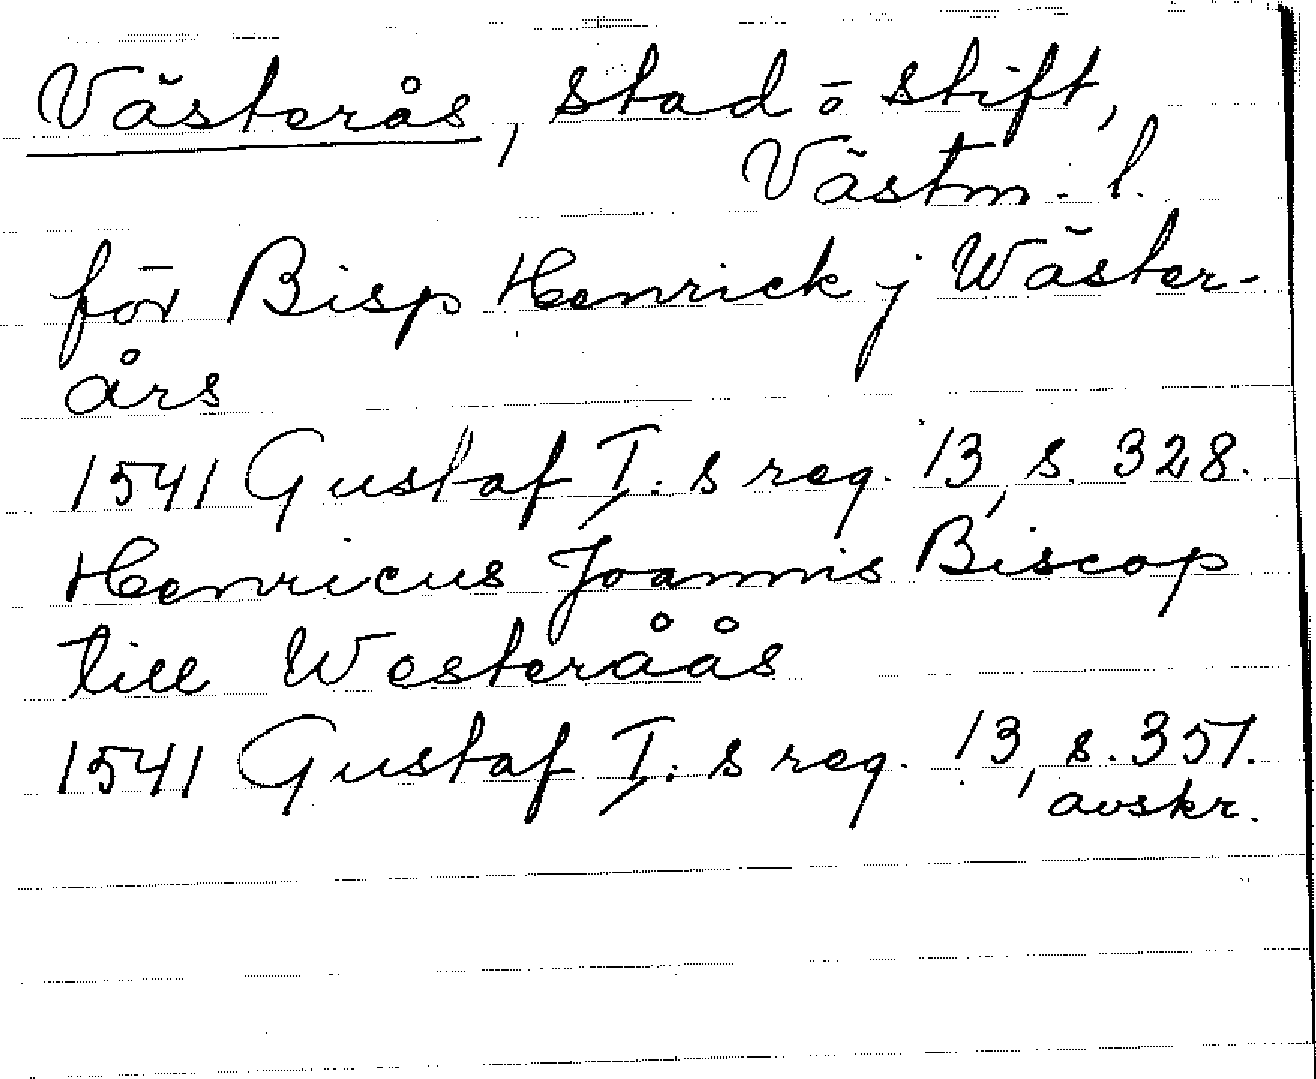 Västerås, stad o stift,
Västm. l.
för Bisp Henrick j Wäster-
års
1541 Gustaf I:s reg. 13, s. 328.
Henricus Joannis Biscop
till Westeråås
1541 Gustaf I:s reg. 13, s. 357.
avskr.